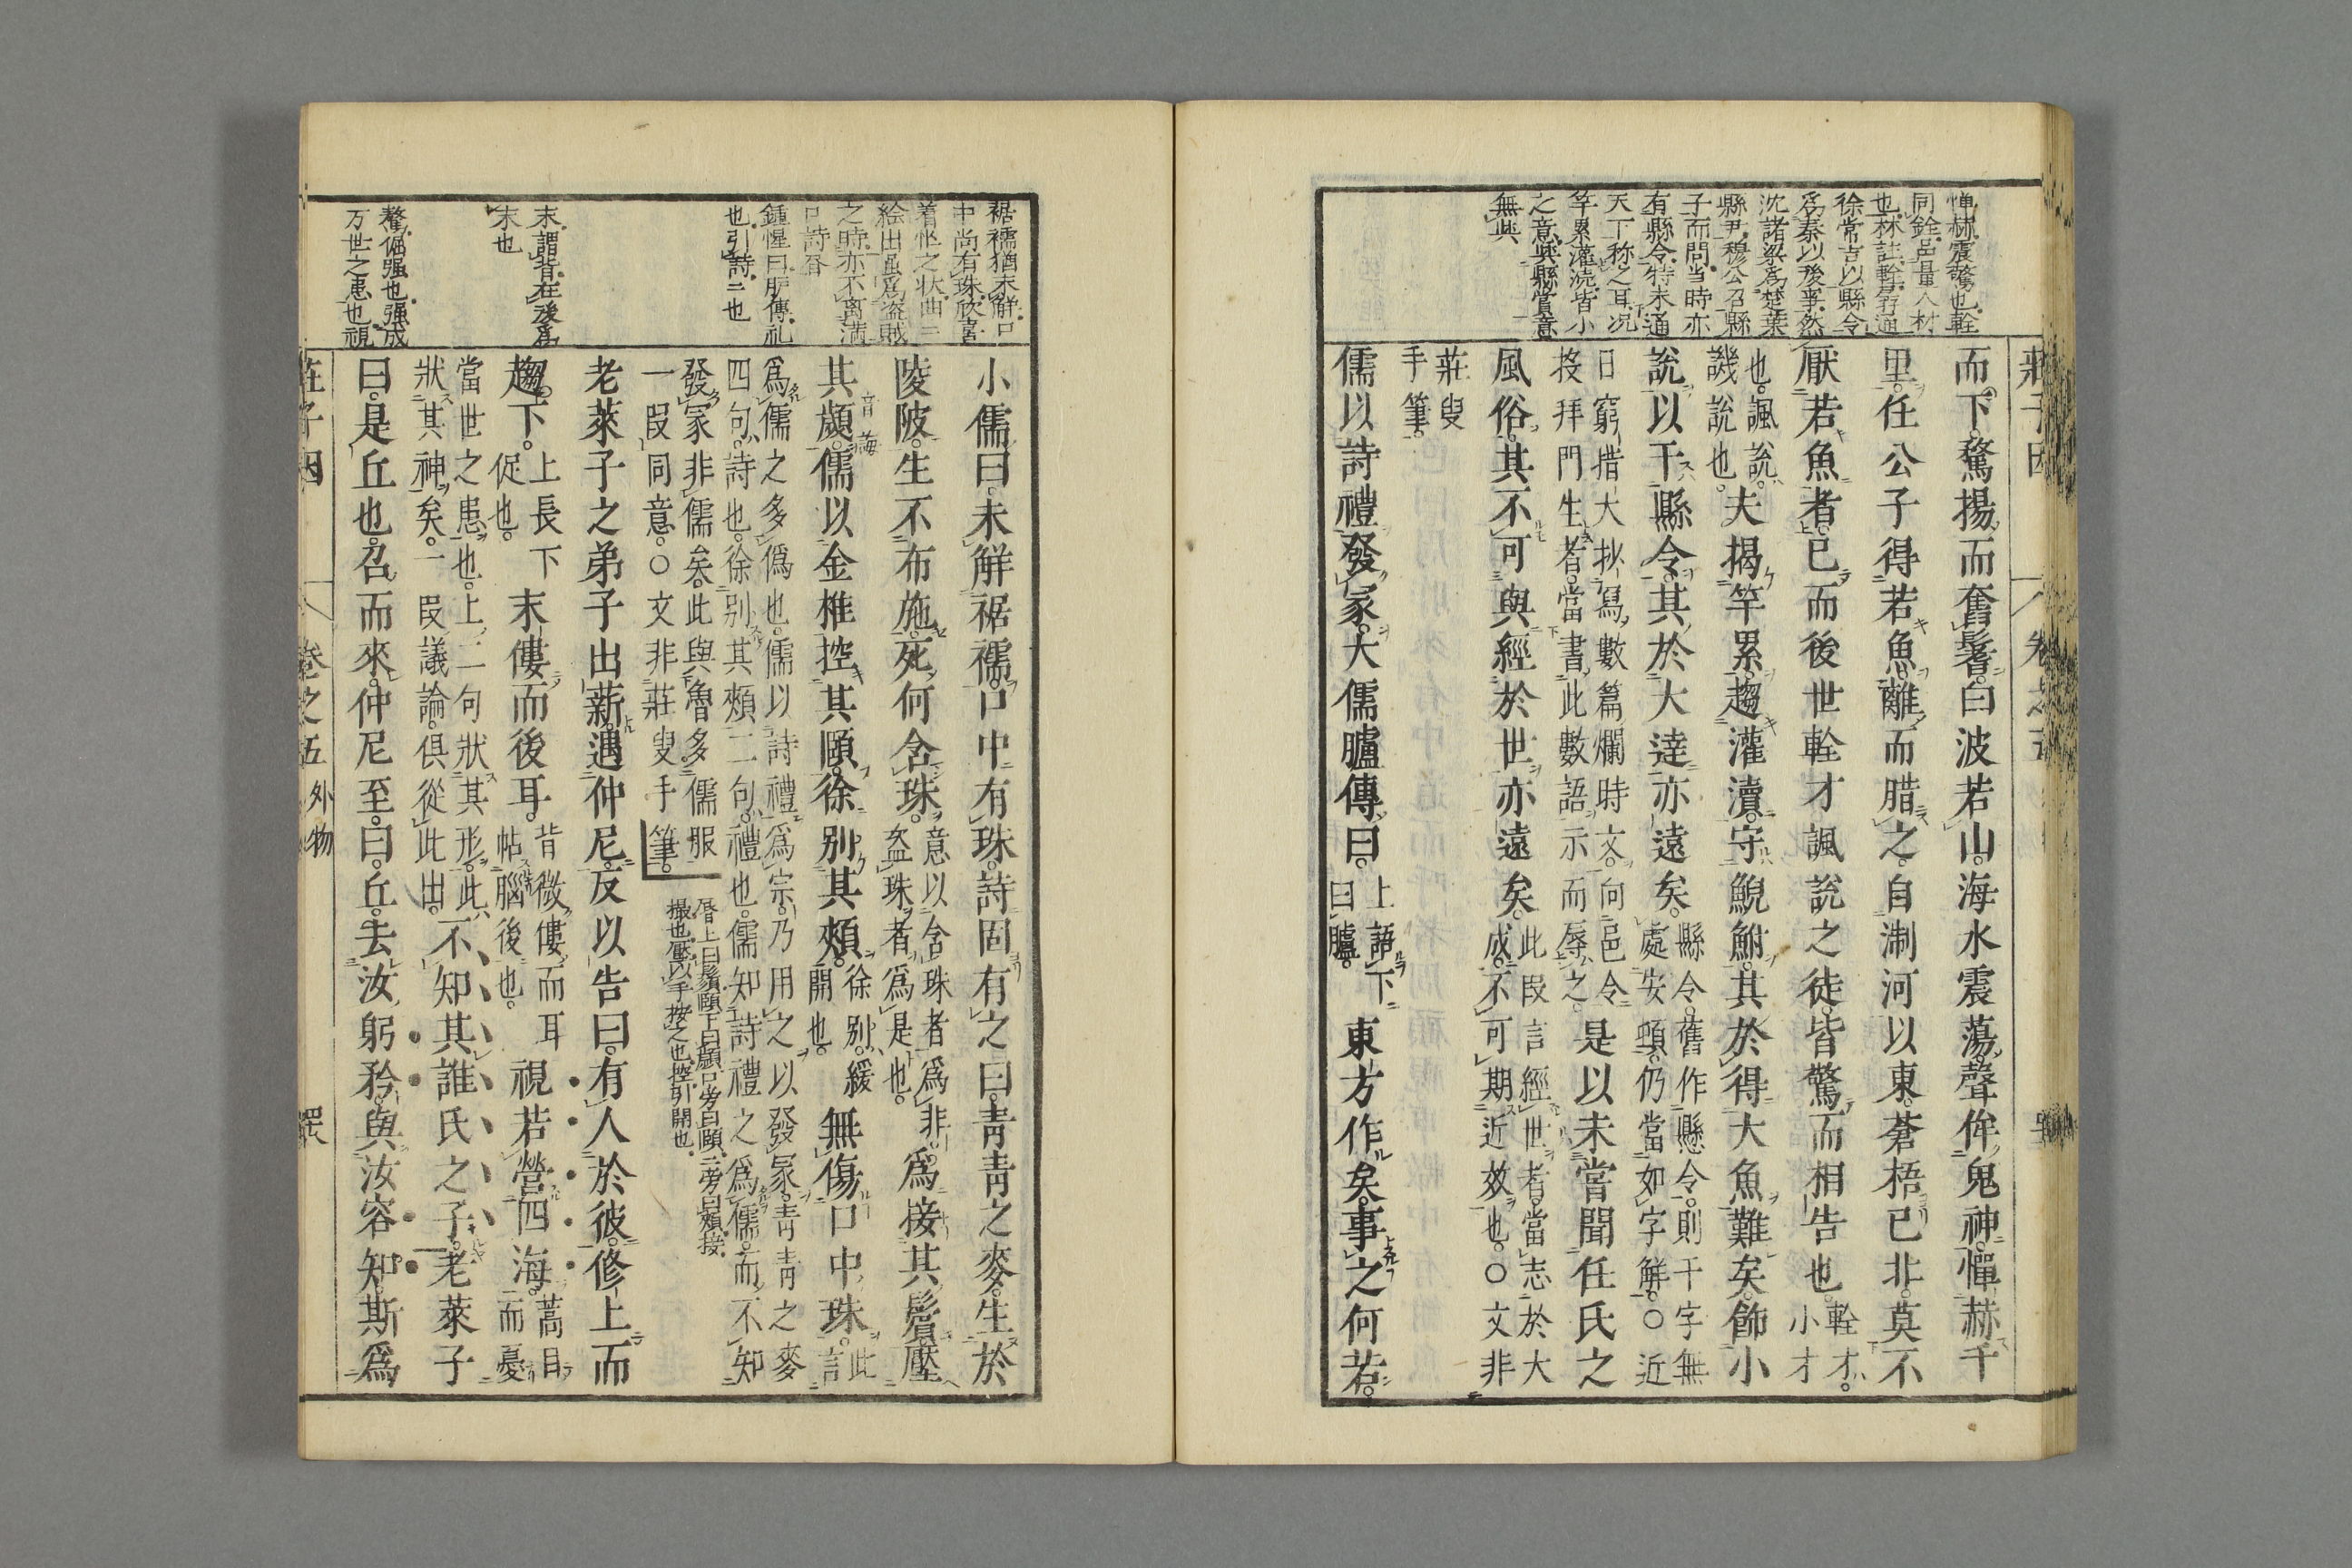 憚赫震驚也輇
同銓邑量人材
也林註輇才通
徐常吉以縣令
爲秦以後事然
沈諸梁爲楚葉
縣尹穆公召縣
子而問當時亦
有縣令特未通
天下称之耳况
竿累灌瀆皆小
之意與縣賞意
無與
而下驚揚而奮鬐白波若山海水震蕩聲侔鬼神憚赫千
里任公子得若魚離而腊之自淛河以東蒼梧已北莫不
厭若魚者已而後世輇才諷說之徒皆驚而相告也輇才小才
也諷說譏說也夫揭竿累趨灌瀆守鯢鮒其於得大魚難矣飾小
說以干縣令其於大達亦遠矣縣令舊作懸令則干字無處安頓仍當如字解○近
日窮措大抄寫數篇爛時文向邑令投拜門生者當書此數語示而辱之是以未嘗聞任氏之
風俗其不可與經於世亦遠矣此段言經世者當志於大成不可期近效也○文非
莊叟手筆
儒以詩禮發冢大儒臚傳曰上語下曰臚東方作矣事之何若
裾襦猶未解口
中尚有珠欣喜
着忙之状曲三
絵出虽爲盗賊
之時亦不离満
口詩唇
鍾惺曰臚傳礼
也引詩二也
末謂背在後爲
末也
驁倔强也强成
万世之患也視
小儒曰未解裾襦口中有珠詩固有之曰青青之麥生於
陵陂生不布施死何含珠意以含珠者爲非盗珠者爲是也爲接其鬢壓
其顪儒以金椎控其頤徐別其頰徐別緩開也無傷口中珠此言
爲儒之多僞也儒以詩禮爲宗乃用之以發冢青青之麥
四句詩也徐別其頰二句禮也儒知詩禮之爲儒而不知
發冢非儒矣此與魯多儒服
一段同意○文非莊叟手筆
唇上曰鬚頤下曰顪口旁曰頤二旁曰頰接
撮也壓以手按之也控引開也
老萊子之弟子出薪遇仲尼反以告曰有人於彼修上而
趨下上長下促也末僂而後耳背微僂而耳帖腦後也視若營四海蒿目而憂
當世之患也上二句狀其形此狀其神矣一段議論俱從此出不知其誰氏之子老萊子
曰是丘也召而來仲尼至曰丘去汝躬矜與汝容知斯爲
莊子因
卷之五
外物